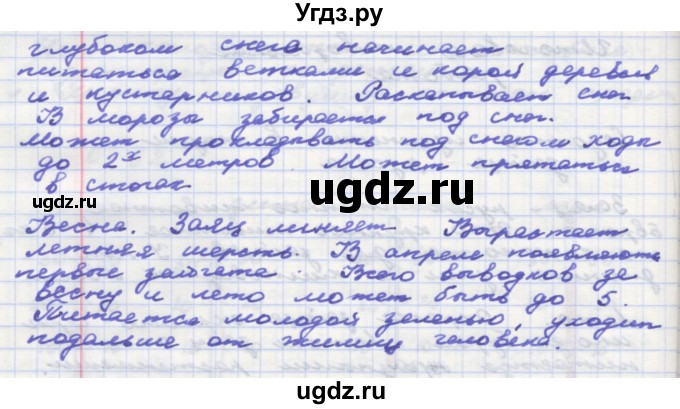 Угдз.ру
глубоком снега начинает
питаться ветками и корой деревьев
и кустарников. Раскапывает снег.
В морозы забирается под снег.
Может прокладывать под снегом ходы
до 2х метров. Может прятаться
в стогах
ugdz.ru
ugdz.ru
Весна. Заяц линяет. Вырастает
летняя шерсть. В апреле появляются
первые зайчата. Всего выводков за
весну и лето может быть до 5.
Питается молодой зеленью, уходит
подальше от жилищ человека.
ugdz.ru